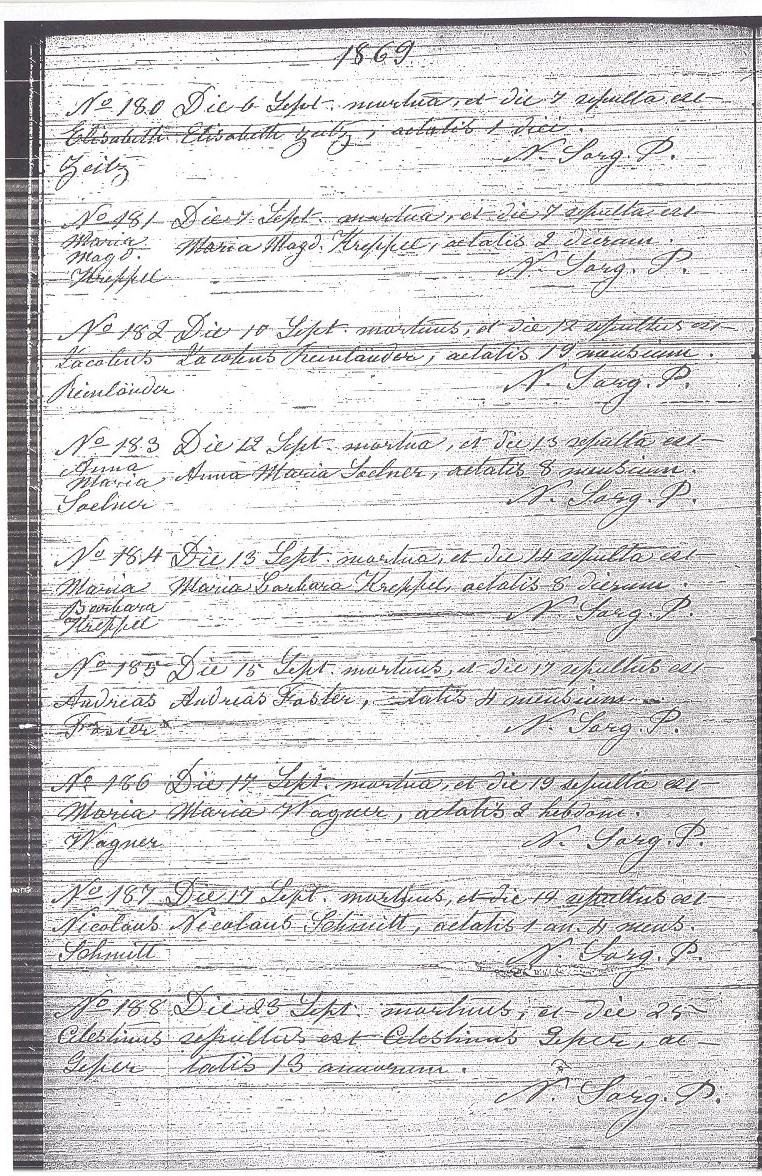 1869
No 180 Die 6 Sept. mortua, et die 7 sepulta est
Elisabeth Elisabeth Zeitz, aetatis 1 diei.
Zeitz N. Sorg. P.
No 181 Die 7 Sept. mortua, et die 7 sepulta est
Maria
Magd. Maria Magd. Kreppel, aetatis 2 dierum.
Kreppel N. Sorg. P.
No 182 Die 10 Sept. mortuus, et die 12 sepultus est
Jacobus Jacobus Reinländer, aetatis 19 mensium.
Reinländer N. Sorg. P.
No 183 Die 12 Sept. mortua, et die 13 sepulta est
Anna
Maria Anna Maria Soelner, aetatis 8 mensium.
Soelner N. Sorg. P.
No 184 Die 13 Sept. mortua, et die 14 sepulta est
Maria Maria Barbara Kreppel, aetatis 8 dierum.
Barbara
Kreppel N. Sorg. P.
No 185 Die 15 Sept. mortuus, et die 17 sepultus est
Andreas Andreas Foster, tatis 4 mensium
N. Sorg. P.
No 186 Die 17 Sept. mortua, et die 19 sepulta est
Maria Maria Wagner, aetatis 2 hebdom.
Wagner N. Sorg. P.
No 187 Die 17 Sept. mortuus, et die 19 sepultus est
Nicolaus Nicolaus Schmitt, aetatis 1 an. 4 mens.
Schmitt N. Sorg. P.
No 188 Die 23 Sept. mortuus, et die 25
Celestinus sepultus est Celestinus Geper, ae-
Geper tatis 13 annorum.
N. Sorg. P.